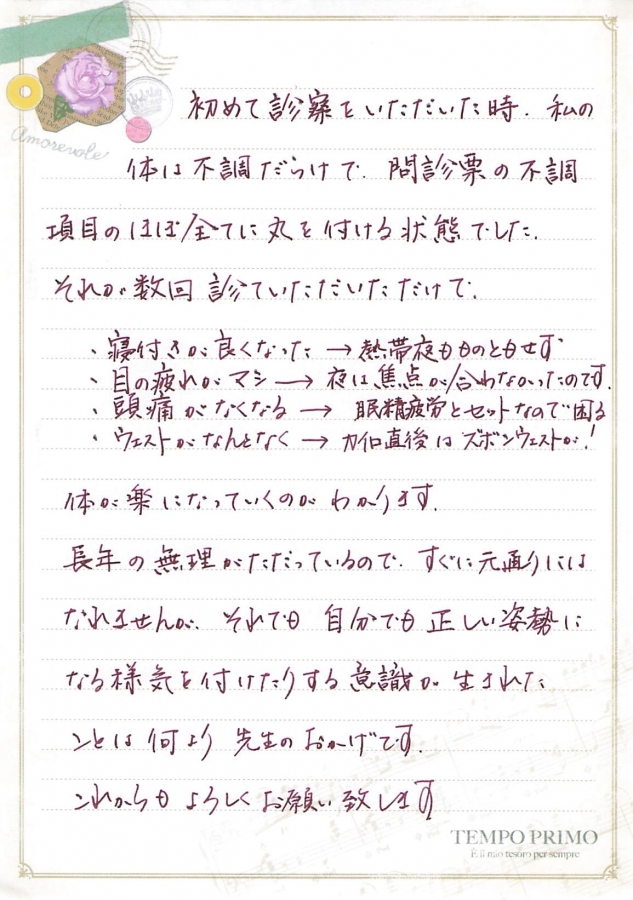 Amorevole
初めて診察をいただいた時、私の
体は不調だらけで、問診票の不調
項目のほぼ全てに丸を付ける状態でした。
それが数回診ていただいただけで、
・寝付きが良くなった → 熱帯夜もものともせず
・目の疲れがマシ → 夜は焦点が合わなかったのです。
・頭痛がなくなる → 眼精疲労とセットなので困る
・ウェストがなんとなく → カイロ直後はズボンウェストが!
体が楽になっていくのがわかります。
長年の無理がたたっているので、すぐに元通りには
なれませんが、それでも自分でも正しい姿勢に
なる様気を付けたりする意識が生まれた
ことは何より先生のおかげです。
これからもよろしくお願い致します
TEMPO PRIMO
È il mio tesoro per sempre